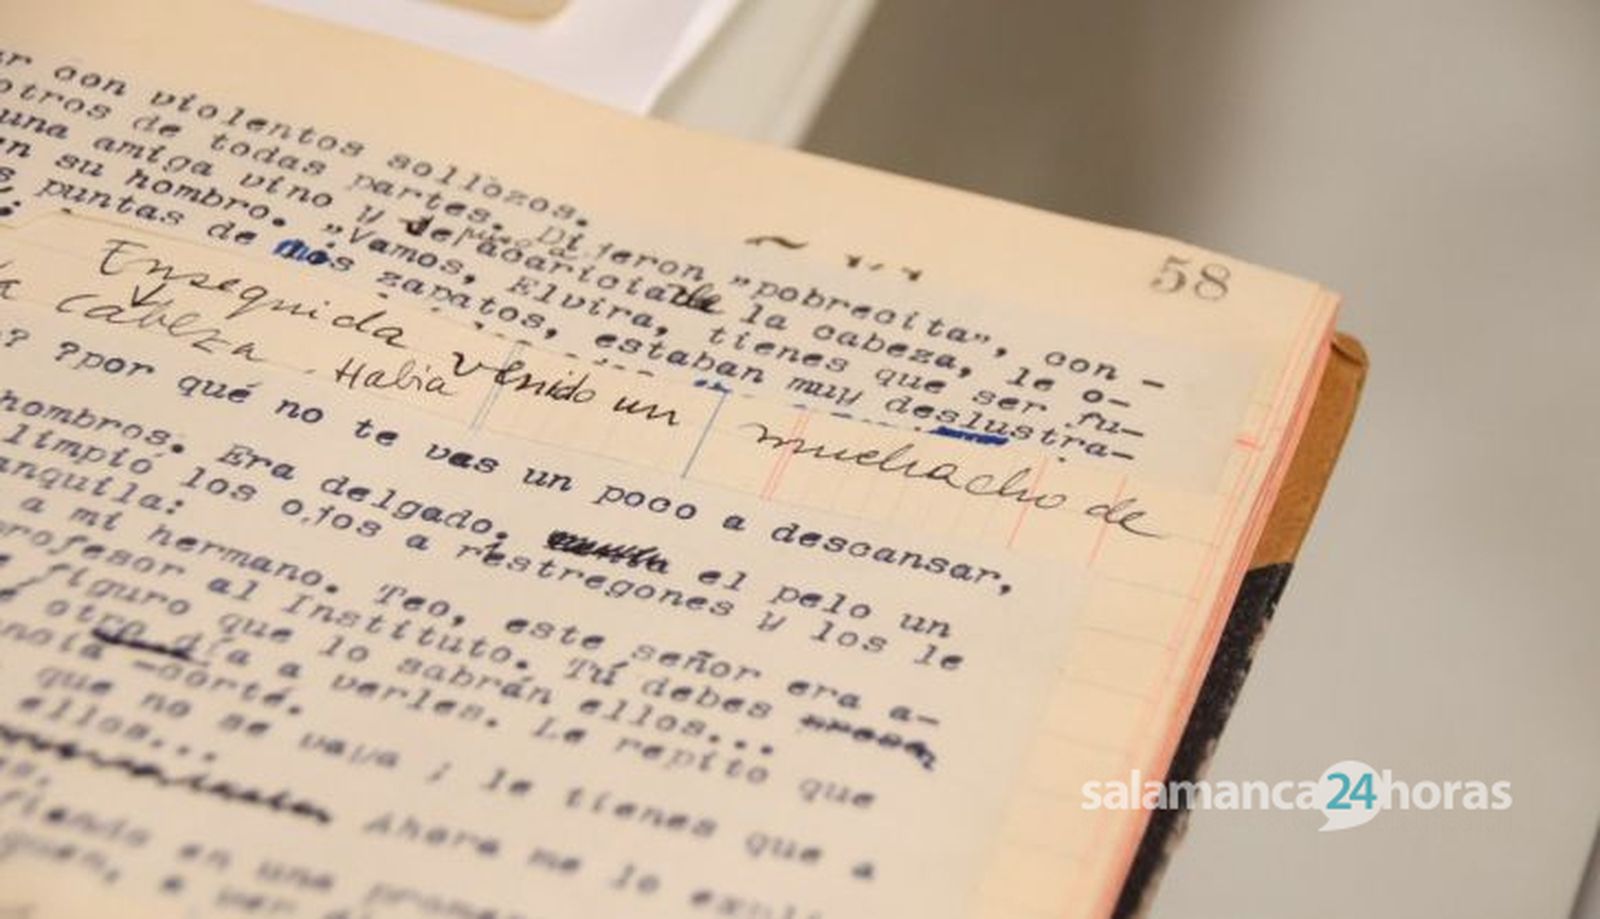 58
con violentos sollozos.
otros de todas partes. Dijeron "pobrecita", con -
una amiga vino y le acariciaba la cabeza, le o-
en su hombro. "Vamos, Elvira, tienes que ser fu-
puntas de mis zapatos, estaban muy deslustra-
Enseguida venido un muchacho de
cabeza. Habia
? ?por qué no te vas un poco a descansar,
hombros. Era delgado, el pelo un
limpió los ojos a restregones y los le
anquila:
a mi hermano. Teo, este señor era a-
profesor al Instituto. Tú debes
figuro que lo sabrán ellos...
otro día a verles. Le repito que
-corté.
que no se vaya ; le tienes que a
ellos...
Ahora me lo
en una
salamanca24horas